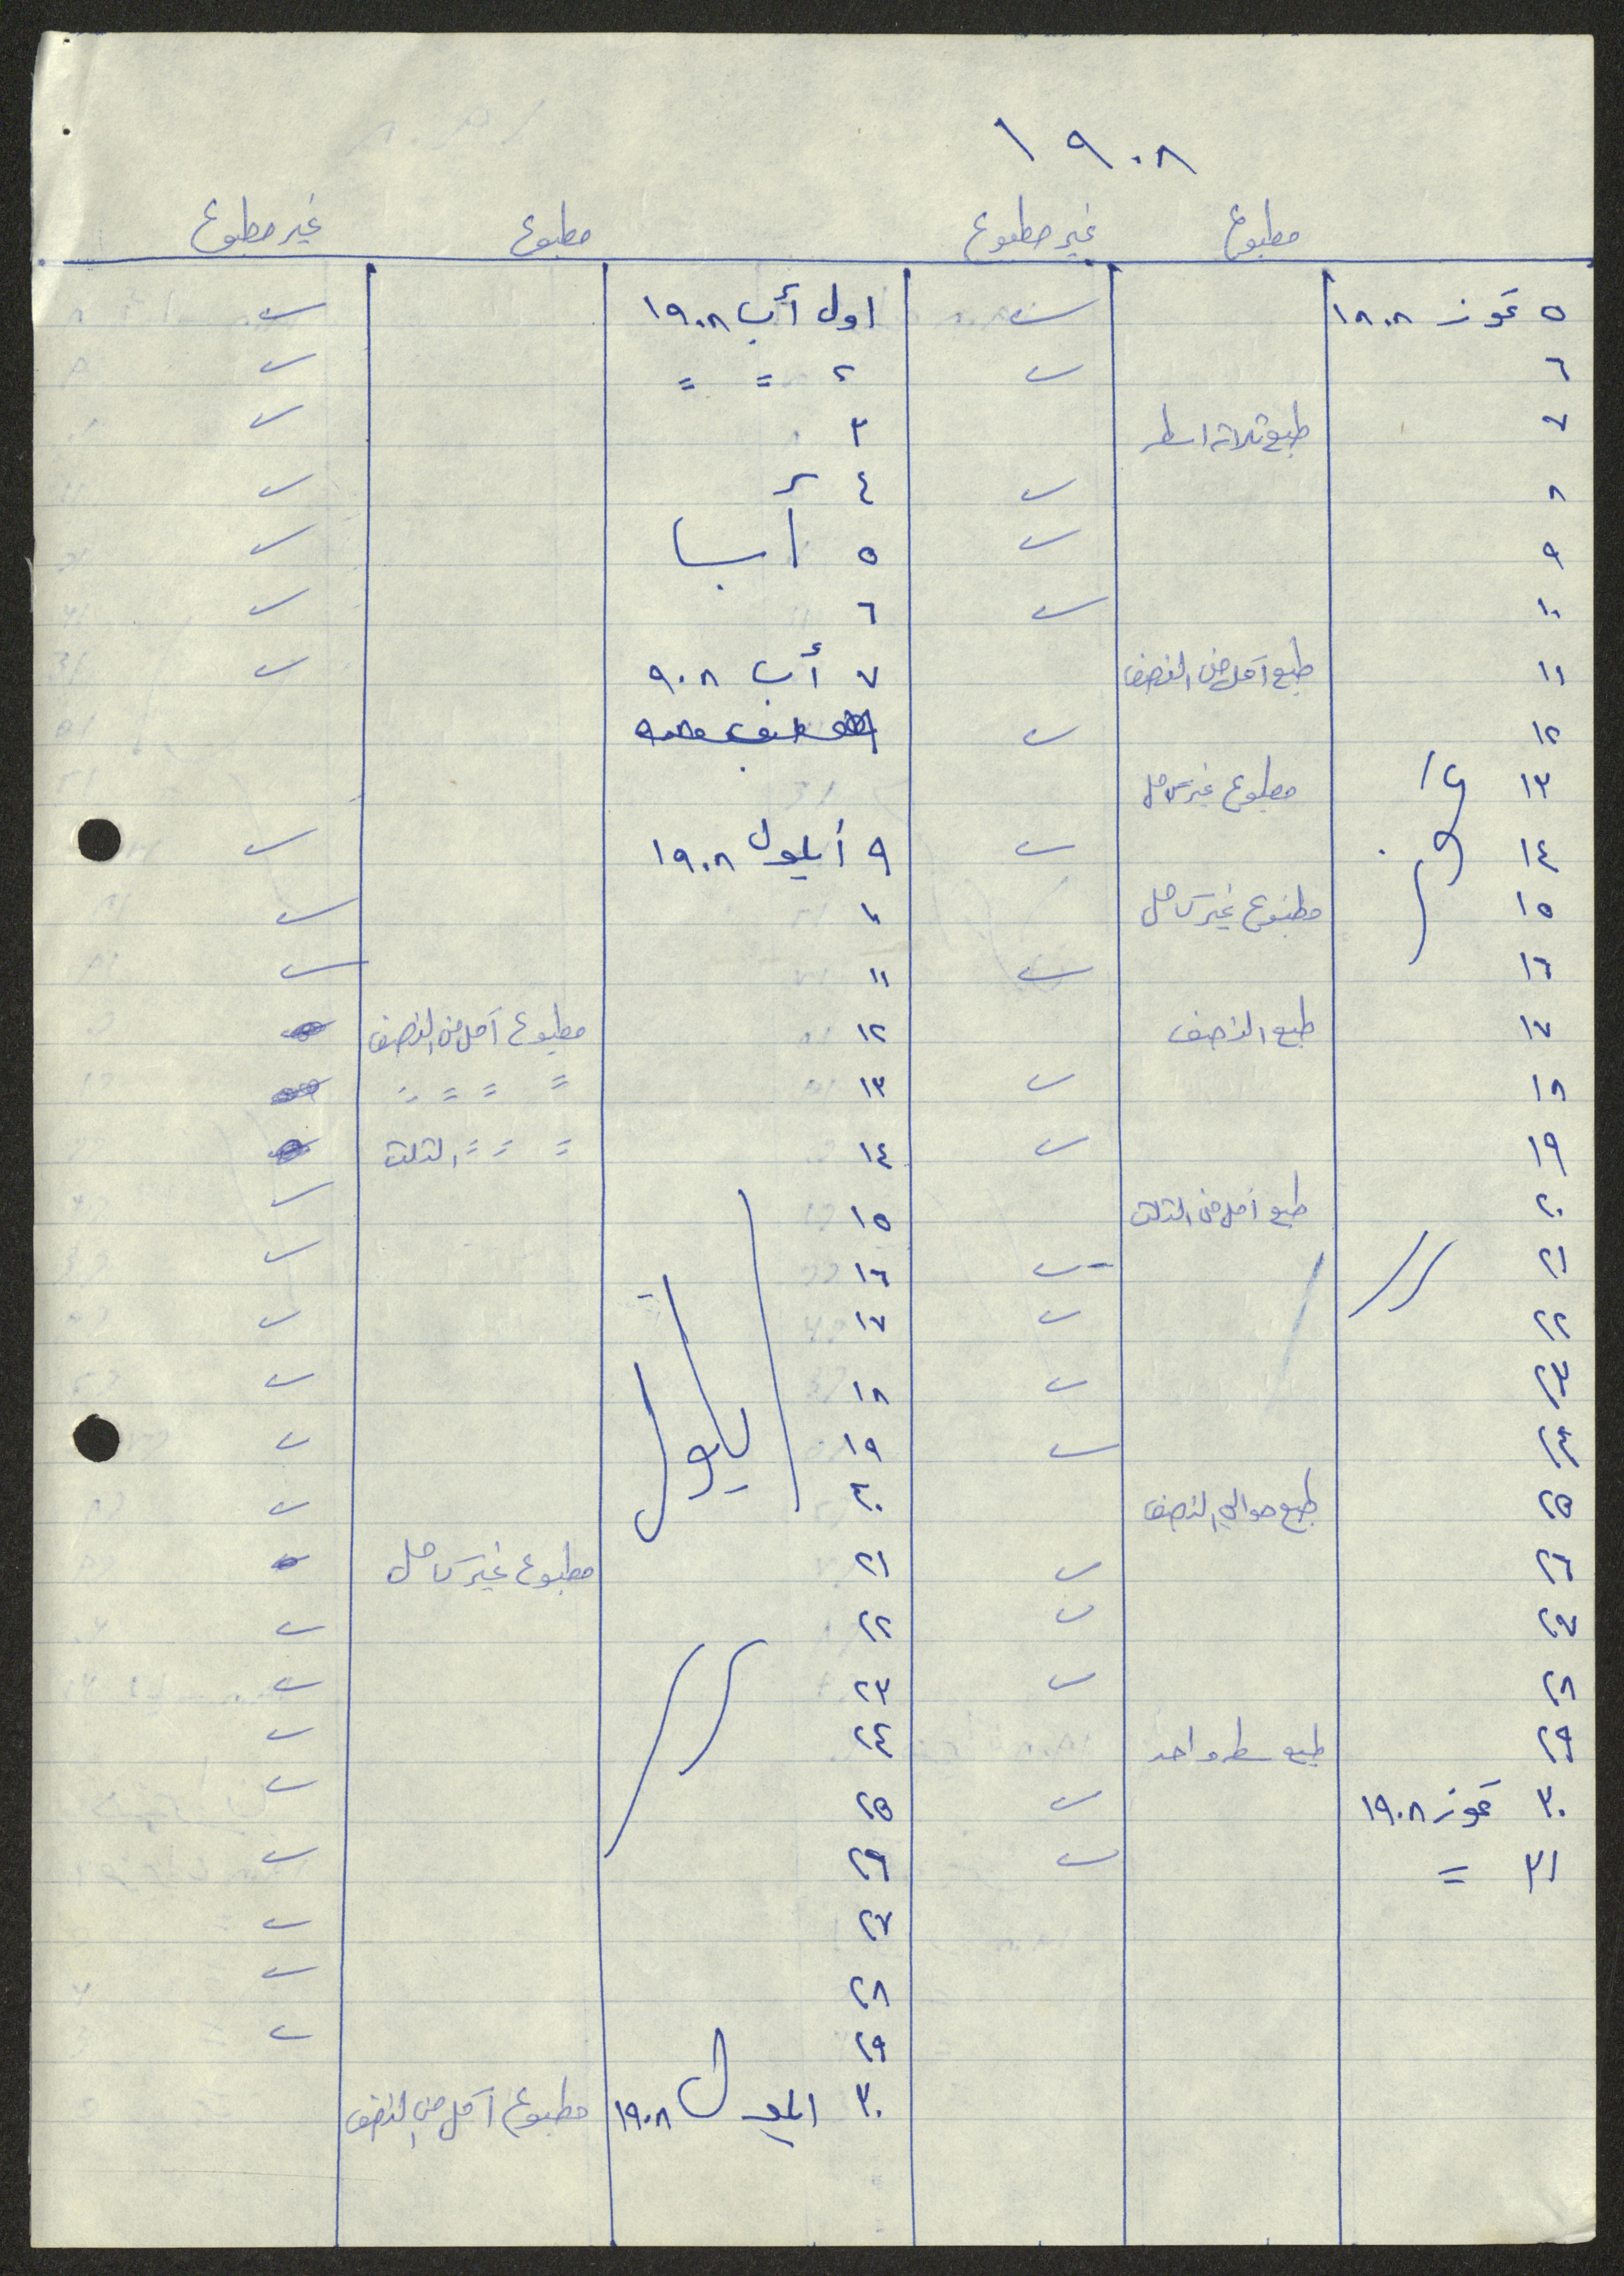 ١٩٠٨
مطبوع غير مطبوع مطبوع غير مطبوع
٥ تموز ١٩٠٨ ✓ اول آب ١٩٠٨ ✓
٦ ✓ ٢ = = ✓
٧ طبع ثلاثة اسطر ٣ ✓
٨ ✓ ٤ ✓
٩ ✓ ٥ آب ✓
١٠ ✓ ٦ ✓
١١ طبع أقل من النصف ٧ أب ٩٠٨ ✓
١٢ ✓
١٣ تموز مطبوع غير كامل
١٤ ✓ ٩ أيلول ١٩٠٨ ✓
١٥ مطبوع غير كامل ١٠ ✓
١٦ ✓ ١١ ✓
١٧ طبع النصف ١٢ مطبوع أقل من النصف
١٨ ✓ ١٣ = = = =
١٩ ✓ ١٤ = = = الثلث
٢٠ طبع أقل من الثلث ١٥ ✓
٢١ // ✓ ١٦ ✓
٢٢ ✓ ١٧ أيلول ✓
٢٣ ✓ ١٨ ✓
٢٤ ✓ ١٩ ✓
٢٥ طبع حوالي النصف ٢٠ ✓
٢٦ ✓ ٢١ مطبوع غير كامل
٢٧ ✓ ٢٢ ✓
٢٨ ✓ ٢٣ // ✓
٢٩ طبع سطر واحد ٢٤ ✓
٣٠ تموز ١٩٠٨ ✓ ٢٥ ✓
٣١ = ✓ ٢٦ ✓
٢٧ ✓
٢٨ ✓
٢٩ ✓
٣٠ ايلول ١٩٠٨ مطبوع أقل من النصف